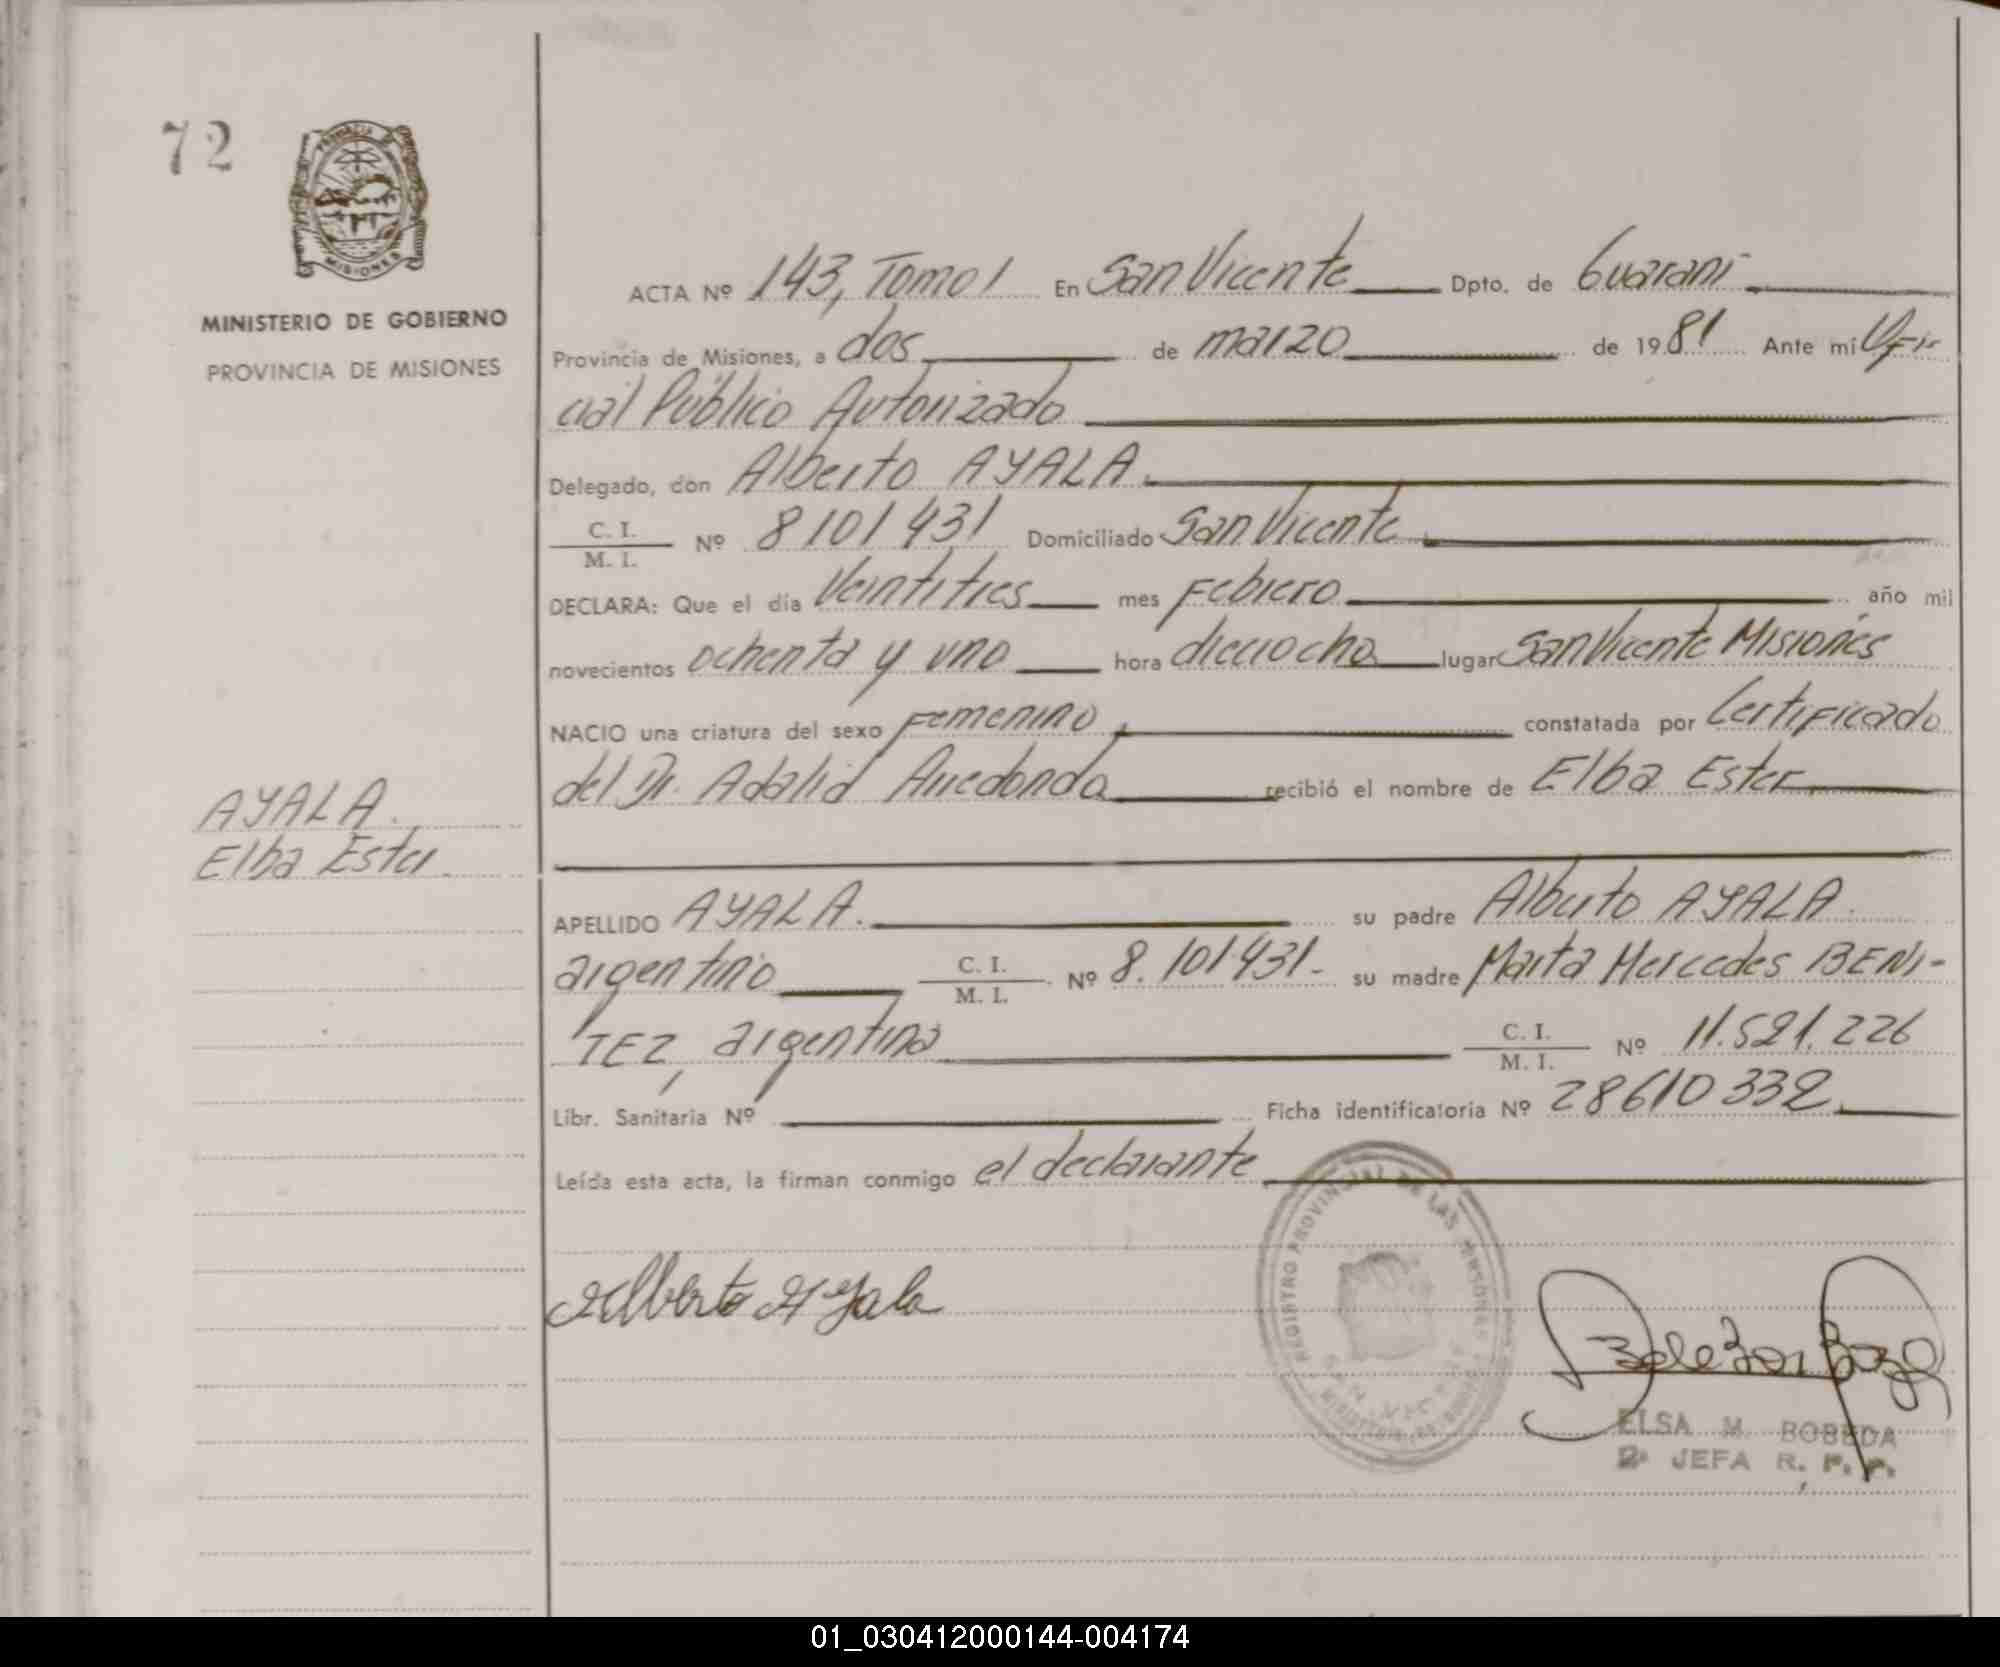 72
PROVINCIA DE
MISIONES
MINISTERIO DE GOBIERNO
PROVINCIA DE MISIONES
AYALA.
Elba Ester.
ACTA Nº 143, Tomo I En San Vicente Dpto. de Guaraní
Provincia de Misiones, a dos de marzo de 1981 Ante mí Ofi-
cial Público Autorizado
Delegado, don Alberto AYALA.
C. I.
M. I. Nº 8101431 Domiciliado San Vicente
DECLARA: Que el día Veintitres mes Febrero año mil
novecientos ochenta y uno hora dieciocho lugar San Vicente Misiones
NACIO una criatura del sexo Femenino, constatada por Certificado
del Dr. Adalid Arredondo recibió el nombre de Elba Ester
APELLIDO AYALA. su padre Alberto AYALA.
argentino C. I.
M. I. Nº 8.101431- su madre Marta Mercedes BENI-
TEZ, argentina C. I.
M. I. Nº 11.521.226
Libr. Sanitaria Nº Ficha identificatoria Nº 28610332
Leída esta acta, la firman conmigo el declarante
REGISTRO PROVINCIAL DE LAS PERSONAS
SAN VICENTE
Alberto Ayala
ELSA M. BOBEDA
2ª JEFA R. P. P.
01_030412000144-004174